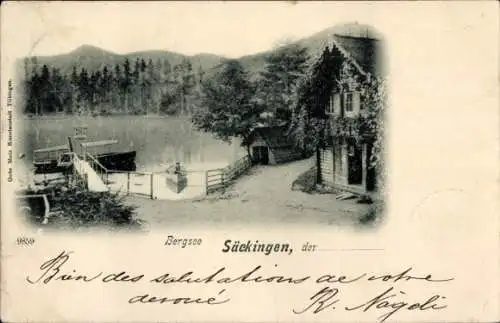 Gebr. Metz Kunstanstalt Tübingen.
9859
Bergsee Säckingen, den
Bien des salutations de votre
dévoué R. Nägeli